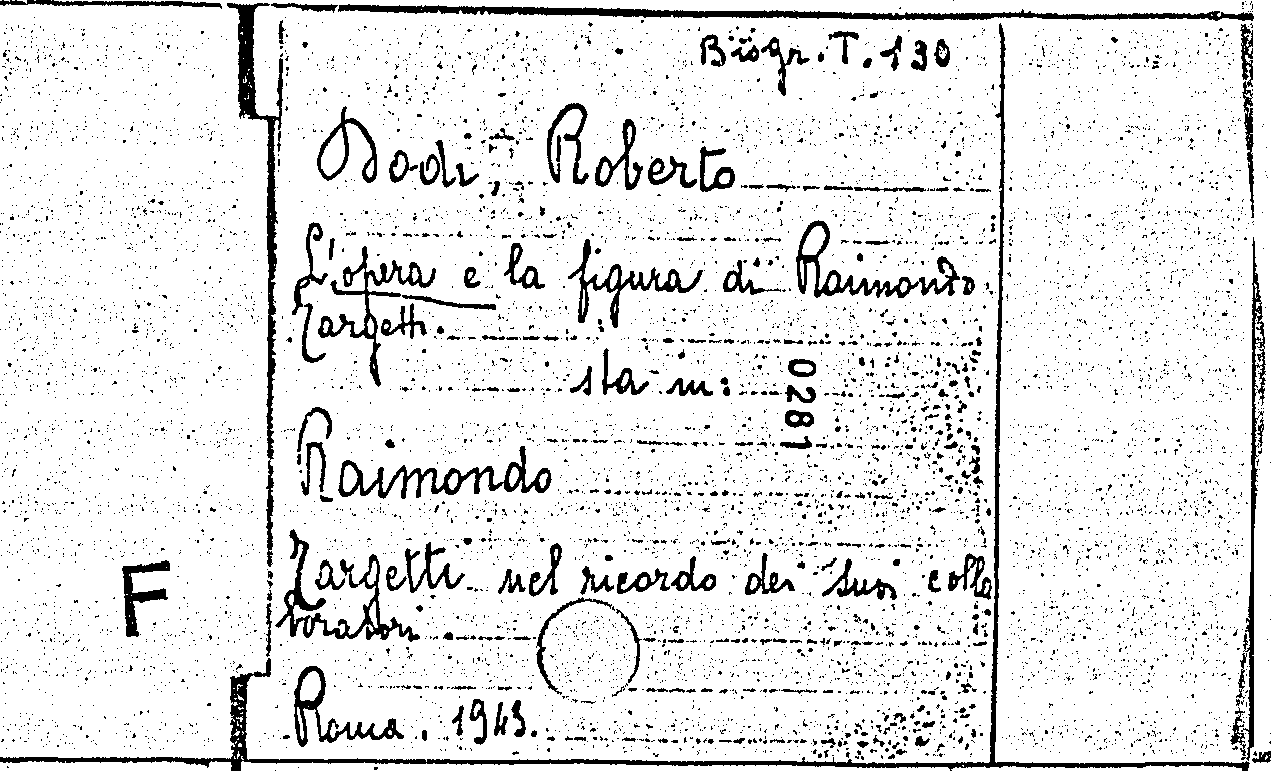 Biogr. T. 130
Dodi, Roberto
L'opera e la figura di Raimondo
Targetti.
sta in:
0281
Raimondo
Targetti nel ricordo dei suoi colla
boratori.
F
Roma. 1943.